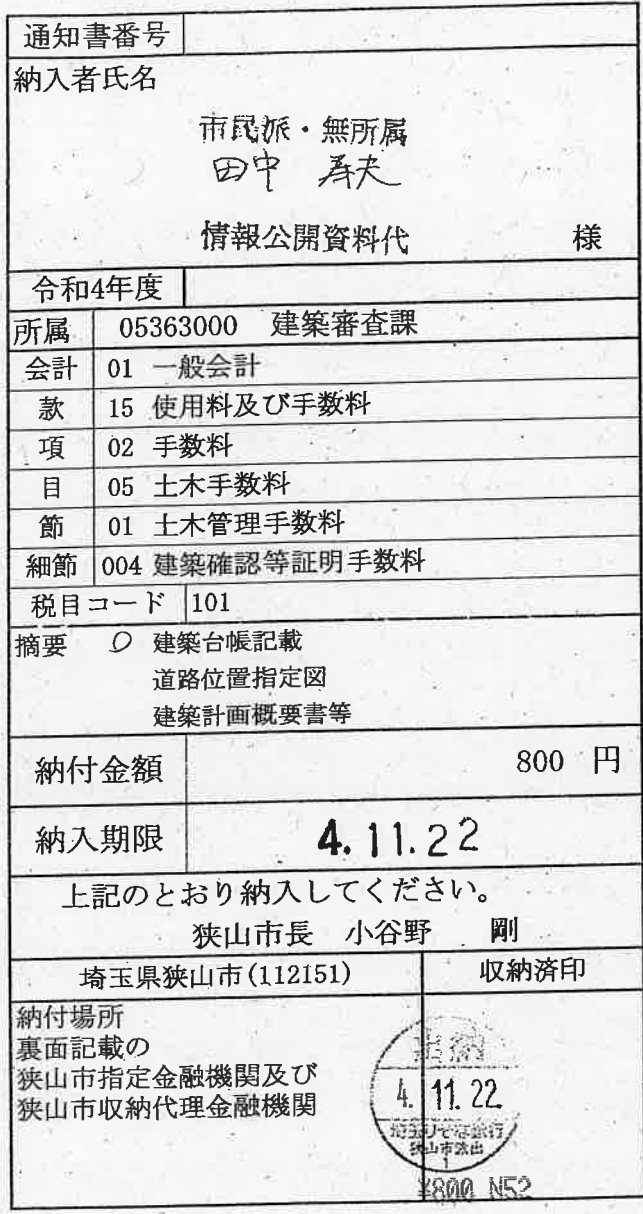 通知書番号
納入者氏名
市民派・無所属
田中 寿夫
情報公開資料代 様
令和4年度
所属 05363000 建築審査課
会計 01 一般会計
款 15 使用料及び手数料
項 02 手数料
目 05 土木手数料
節 01 土木管理手数料
細節 004 建築確認等証明手数料
税目コード 101
摘要 建築台帳記載
道路位置指定図
建築計画概要書等
納付金額 800 円
納入期限 4.11.22
上記のとおり納入してください。
狭山市長 小谷野 剛
埼玉県狭山市(112151) 収納済印
納付場所
裏面記載の
狭山市指定金融機関及び
狭山市収納代理金融機関
4. 11. 22
埼玉りそな銀行
狭山市派出
1
¥800 N52